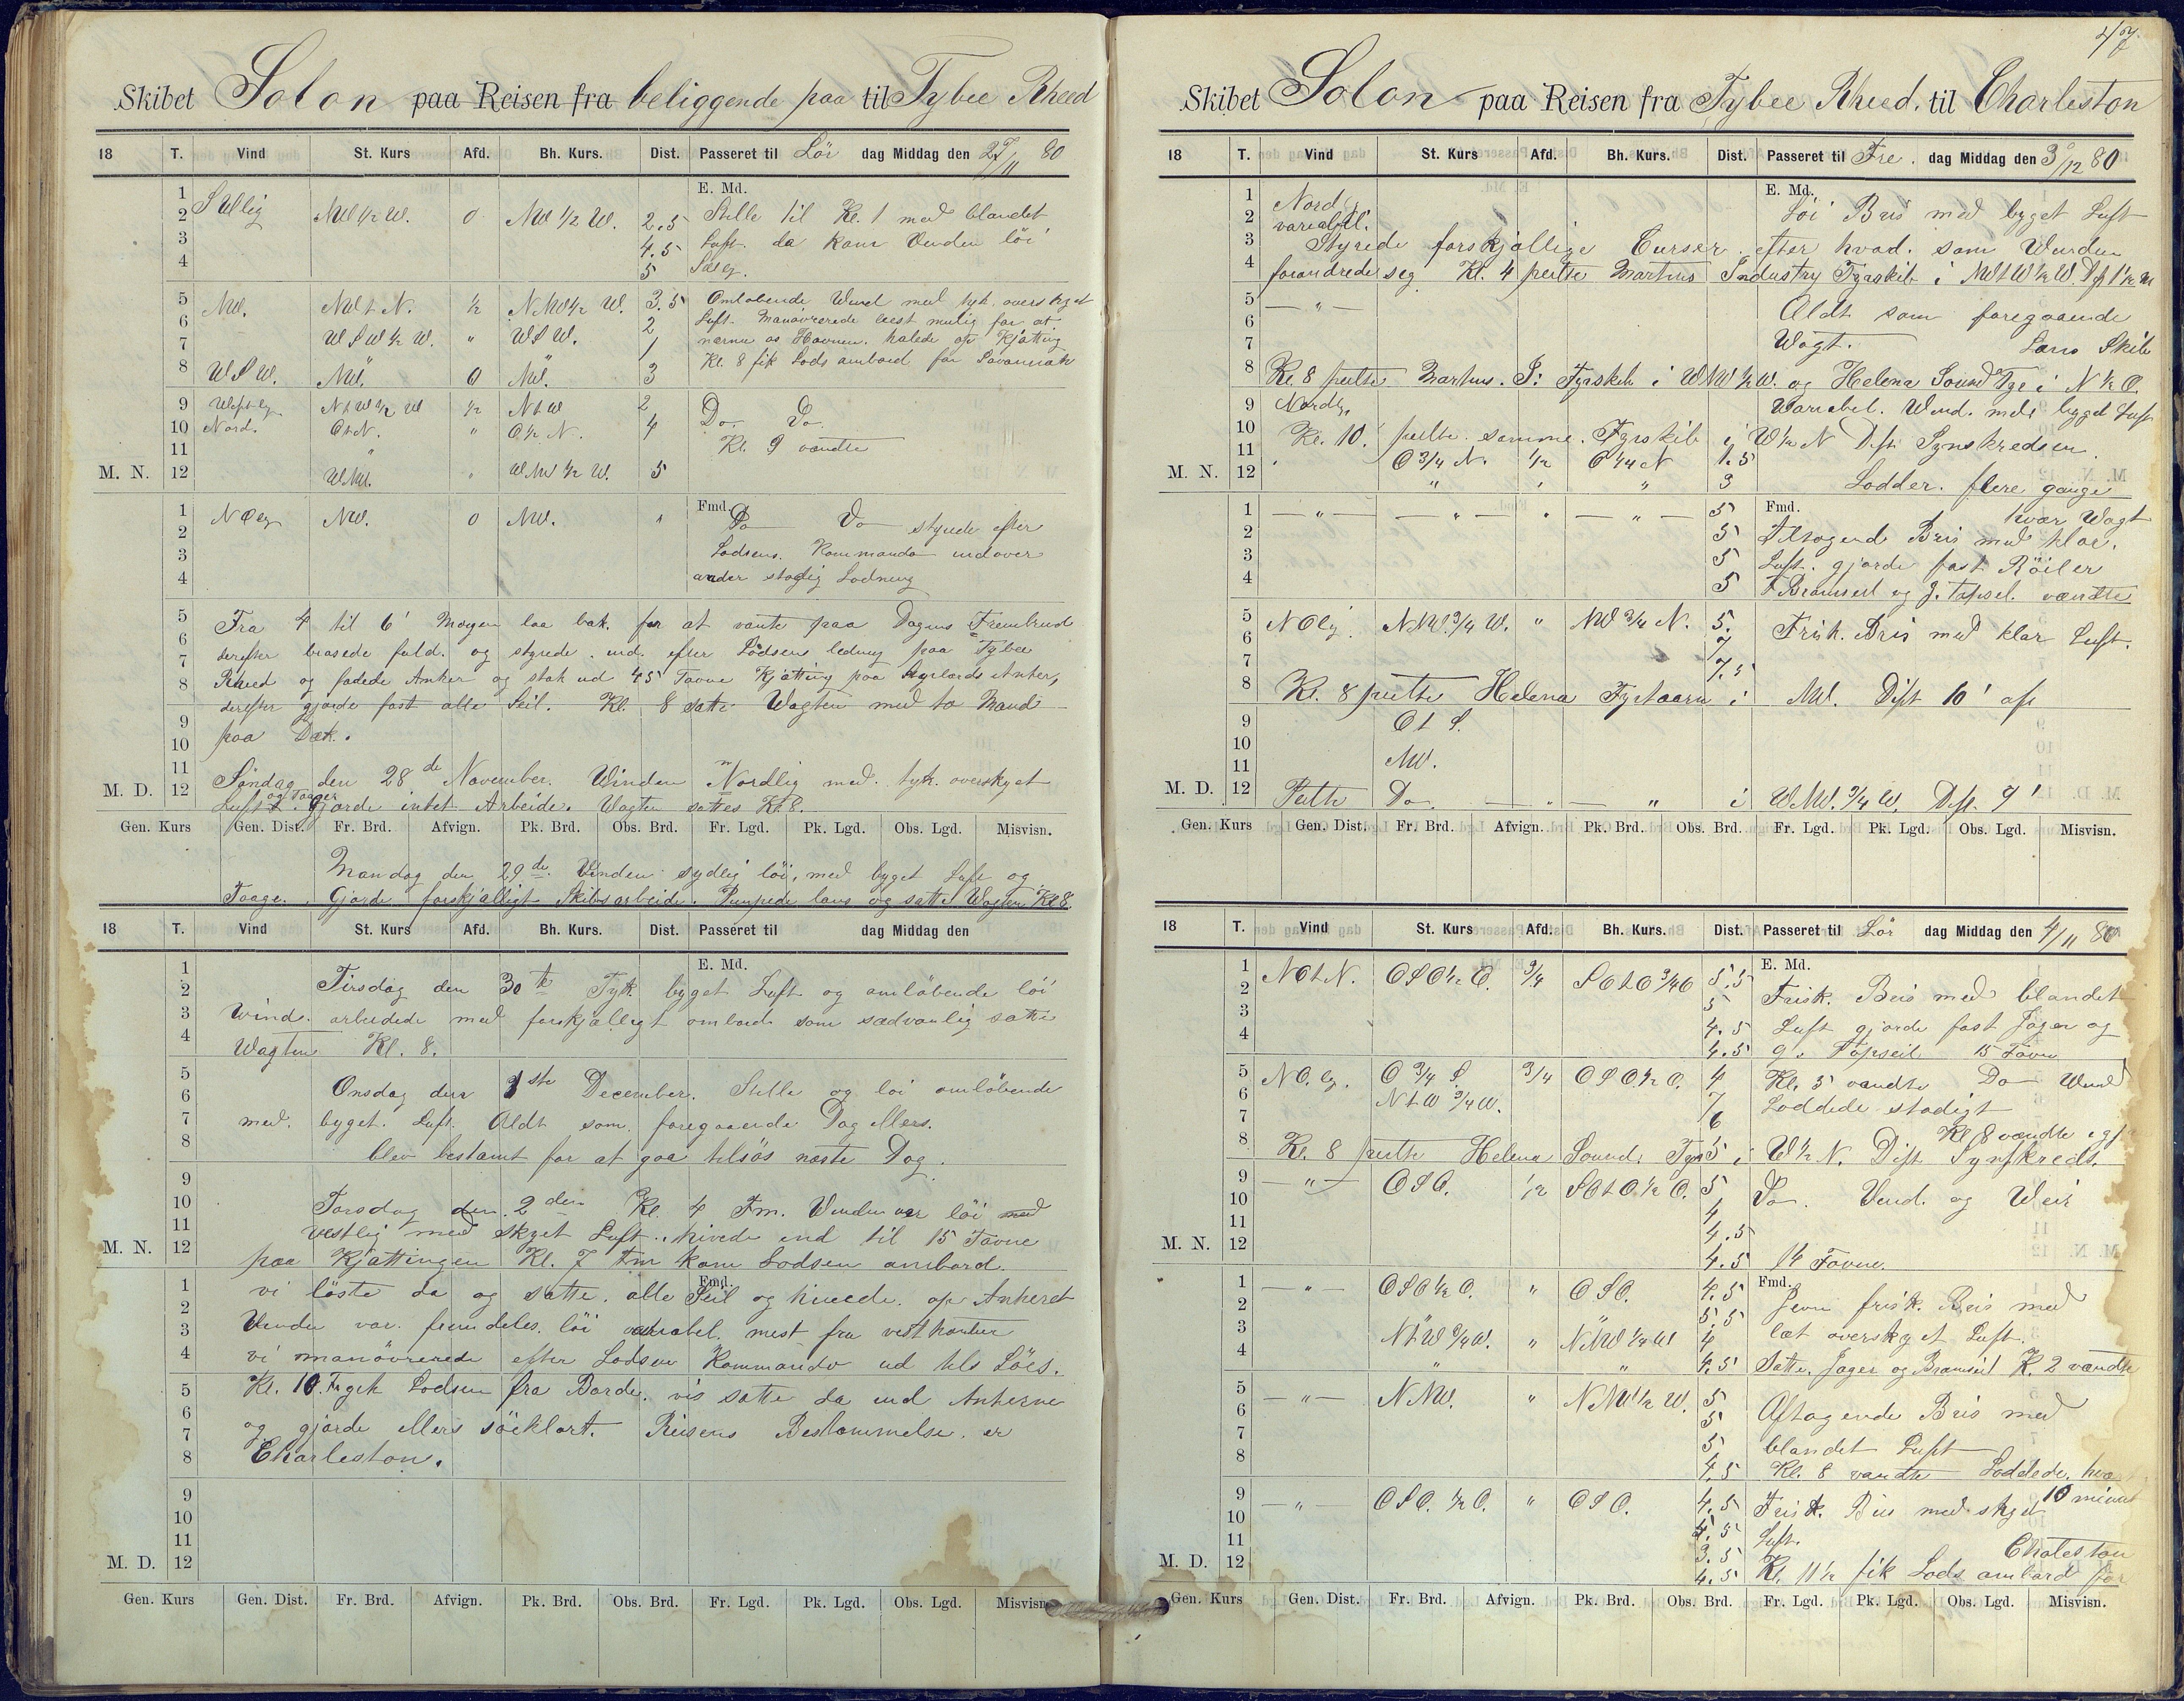 Skibet Solon paa Reisen fra beliggende paa til Tybee Rheed
18 T. Vind St. Kurs Afd. Bh. Kurs. Dist. Passeret til Lör dag Middag den 27/11 80
E. Md.
1 2 Stillig NW ½ W. 0 NW ½ W. 2.5 Stille til Kl. 1 med blandet
3 4.5 Luft da kom Vinden löi
4 5
5 NW. NW t N. ½ NNW ½ W. 3.5 Omlöbende Wind med tyk overskyet
6 WSW ½ W. " WSW. 2 Luft. Manövrerede best mulig for at
7 " " 1 Havnen. halede op Kjätting
8 WSW. NW. 0 NW. 3 Kl. 8 fik Lods ombord for Savannah
9 NtW ½ W ½ NtW 2 Do. Do.
10 Nord. OtN. " O ½ N. 4
11 " Kl. 9 vendte
M. N. 12 WNW. " WNW ½ W. 5
1 NOlig NW. 0 NW. " Fmd. Do Do styrede efter
2
3 Lodsens Kommando indover
4 under stadig Lodning
5 Fra 4 til 6 Morgen laa bak for at vente paa Dagens Frembrud
6 derefter brasede fuld og styrede ind efter Lodsens ledning paa Tybee
7 Rheed og fadede Anker og stak ud 45 Favne Kjätting paa Styrbords Anker,
8 derefter gjorde fast alle Seil. Kl. 8 satte Wagten med to Mand
9
10 paa Dæk.
11 Söndag den 28de November. Winden Nordlig med tyk overskyet
M. D. 12 Luft og Taager. Gjorde intet Arbeide. Wagten sattes Kl. 8.
Gen. Kurs Gen. Dist. Fr. Brd. Afvign. Pk. Brd. Obs. Brd. Fr. Lgd. Pk. Lgd. Obs. Lgd. Misvisn.
Mandag den 29de Vinden sydlig löi, med byget Luft og
Taage. Gjorde forskjälligt Skibsarbeide. Pumpede læns og satte Wagten Kl 8.
18 T. Vind St. Kurs Afd. Bh. Kurs. Dist. Passeret til dag Middag den
E. Md.
1
2 Tirsdag den 30te Tyk byget Luft og omlöbende löi
3 Wind. arbeidede med forskjälligt ombord som sædvanlig satte
4 Wagten Kl. 8.
5
6 Onsdag den 1ste December. Stille og löi omlöbende
7 med byget Luft. Aldt som foregaaende Dag ellers.
8 blev bestemt for at gaa tilsös næste Dag.
9
10 Torsdag den 2den Kl. 4 Fm. Vinden var löi med
11 vestlig med skyet Luft. hivede ind til 15 Favne
M. N. 12 paa Kjættingen Kl. 7 Fm kom Lodsen ombord.
Fmd.
1 vi löste da og satte alle Seil og hivede op Ankeret
2
3 Vinden var fremdeles löi variabel mest fra vestkanten
4 vi manövrerede efter Lodsens Kommando ud til Söes.
5 Kl. 10 F gik Lodsen fra Borde. vi satte da ind Ankerne
6
7 og gjorde ellers söeklart. Reisens Bestemmelse er
8 Charleston.
9
10
11
M. D. 12
Gen. Kurs Gen. Dist. Fr. Brd. Afvign. Pk. Brd. Obs. Brd. Fr. Lgd. Pk. Lgd. Obs. Lgd. Misvisn.
47
Skibet Solon paa Reisen fra Tybee Rheed. til Charleston
18 T. Vind St. Kurs Afd. Bh. Kurs. Dist. Passeret til Fre. dag Middag den 3/12 80
E. Md.
1 Nordlig Löi Bris med byget Luft
2 variabel.
3 Styrede forskjällige Curser efter hvad som Winden
4 forandrede seg Kl. 4 peilte Martins Industry Fyrskib i NWtW ½ W.
5 — " — Aldt som foregaaende
6
7 Wagt. Læns Skib
8 Kl. 8 peilte Martins I: Fyrskib i WNW ½ W. og Helena Sound Fyr i N ½ O.
9 Nordlig Variabel. Wind. med byget Luft
10 Kl. 10. peilte samme Fyrskib i W ½ N Dist. Synskredsen.
11 O ¾ N. ½ O ¼ N 1.5
M. N. 12 " " " 3 Lodder. flere gange
1 — " — — " — " — " — 5 Fmd. hver Wagt
2 5 Tiltagende Bris med klar.
3 5 Luft. gjorde fast Röiler
4 5 F Bramseil og G. Topseil. vændte
5 NOlig. NNW ¾ W. " NW ¾ N. 5. Frisk Bris med klar Luft.
6 7
7 7.5
8 Kl. 8 peilte Helena Fyrtaarn i NW. Dist 10' af
9
10 Ot S.
11 NW.
M. D. 12 Peilte Do. — " — " i WNW. ¾ W. Dist. 9'
Gen. Kurs Gen. Dist. Fr. Brd. Afvign. Pk. Brd. Obs. Brd. Fr. Lgd. Pk. Lgd. Obs. Lgd. Misvisn.
18 T. Vind St. Kurs Afd. Bh. Kurs. Dist. Passeret til Lör dag Middag den 4/11 80
E. Md.
1 NOtN. OSO ½ O. ¾ SOtO ¾ O 5.5
2 5 Frisk. Bris med blandet
3 4.5 Luft gjorde fast Jager og
4 4.5 G. Topseil 15 Favne
5 NO.lig. O ¾ S. ¾ OSO ½ O. 4 Kl. 5 vandte Do Wind
6 NtW ¾ W. 7 Loddede stadigt
7 6
8 Kl. 8 peilte Helena Sound. Fyr 5 i W ½ N. Dist Synskreds. Kl 8 vændte
9 — " — OSO. ½ SOtO. ½ O. 5 Do. Vind. og Veir
10 4
11 4.5
M. N. 12 4.5 14 Favne.
1 — " — OSO ½ O. " OSO. 4.5 Fmd. Jevn frisk. Bris med
2 5.5
3 NtW ¾ W. " NNW ¼ W 4 læt overskyet Luft.
4 " " 4.5 Satte. Jager og Bramseil K. 2 vændte
5 — " — NNW. " NNW ½ W. 5
6 5 Aftagende Bris med
7 5 blandet Luft
8 4.5 Kl. 8 vandte Loddede. hve
9 — " — OSO. ½ O. " OSO. 4.5 Frisk. Bris med skyet 10 minut
10 4.5 Luft.
11 3.5 Chaleston
M. D. 12 4.5 Kl. 11 ½ fik Lods ombord for
Gen. Kurs Gen. Dist. Fr. Brd. Afvign. Pk. Brd. Obs. Brd. Fr. Lgd. Pk. Lgd. Obs. Lgd. Misvisn.